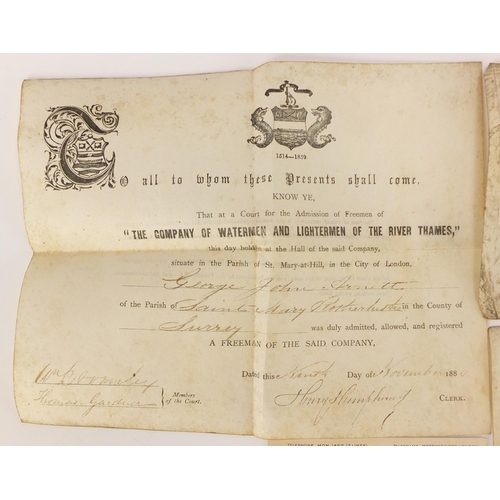 1514—1859.
To all to whom these Presents shall come,
KNOW YE,
That at a Court for the Admission of Freemen of
"THE COMPANY OF WATERMEN AND LIGHTERMEN OF THE RIVER THAMES,"
this day holden at the Hall of the said Company,
situate in the Parish of St. Mary-at-Hill, in the City of London,
George John Arnett
of the Parish of Saint Mary Rotherhithe in the County of
Surrey was duly admitted, allowed, and registered
A FREEMAN OF THE SAID COMPANY,
Dated this Ninth Day of November 188
Thomas Gardner
Members of the Court.
Henry Humpheris
CLERK.